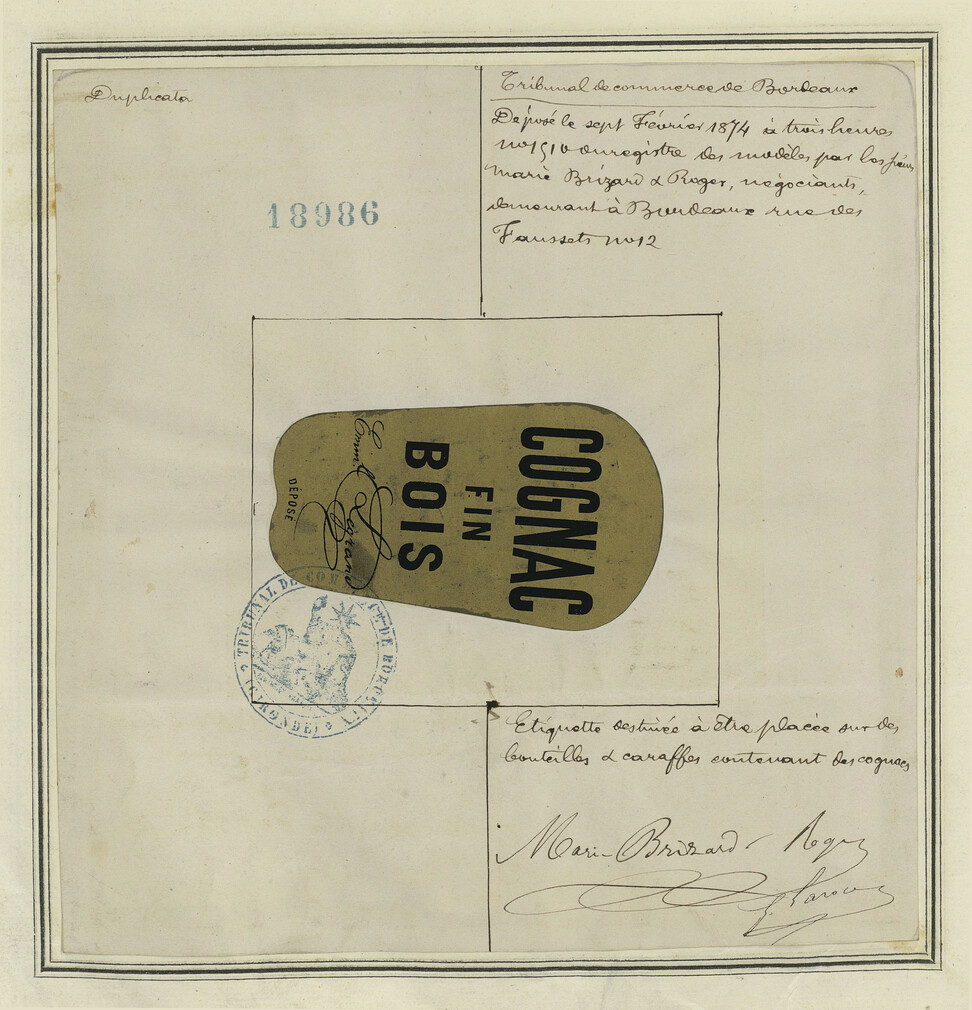 Duplicata
18986
Tribunal de commerce de Bordeaux
Déposé le sept Février 1874 à trois heures
no 1510 du registre des modèles par les
Marie Brizard & Roger, négociants,
demeurant à Bordeaux rue des
Faussets no 12
COGNAC
FIN
BOIS
DÉPOSÉ
TRIBUNAL DE COMMERCE DE BORDEAUX
(GIRONDE)
Etiquette destinée à être placée sur des
bouteilles & caraffes contenant des cognacs
Marie Brizard & Roger